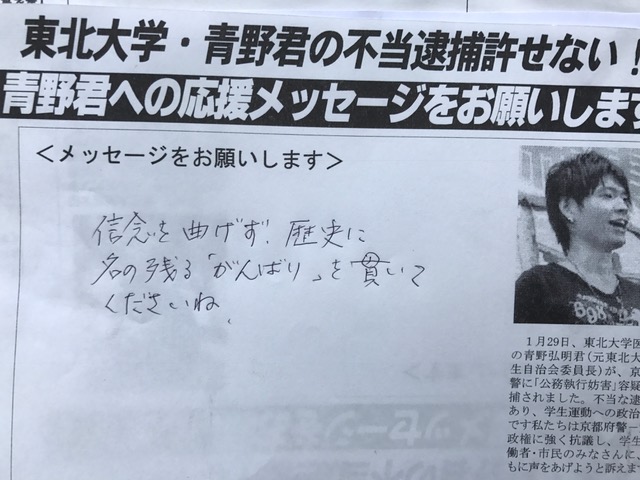 東北大学・青野君の不当逮捕許せない！
青野君への応援メッセージをお願いします
＜メッセージをお願いします＞
信念を曲げず、歴史に
名の残る「がんばり」を貫いて
くださいね。
1月29日、東北大学医
の青野弘明君（元東北大
生自治会委員長）が、京
警に「公務執行妨害」容疑
捕されました。不当な逮
あり、学生運動への政治
です私たちは京都府警－
政権に強く抗議し、学生
働者・市民のみなさんに、
もに声をあげようと訴えます